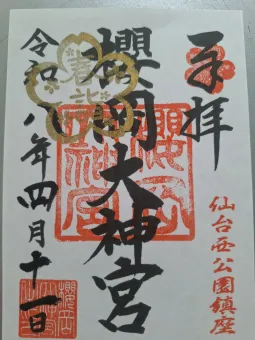 奉拝
仙台西公園鎮座
櫻岡大神宮
令和八年四月十一日